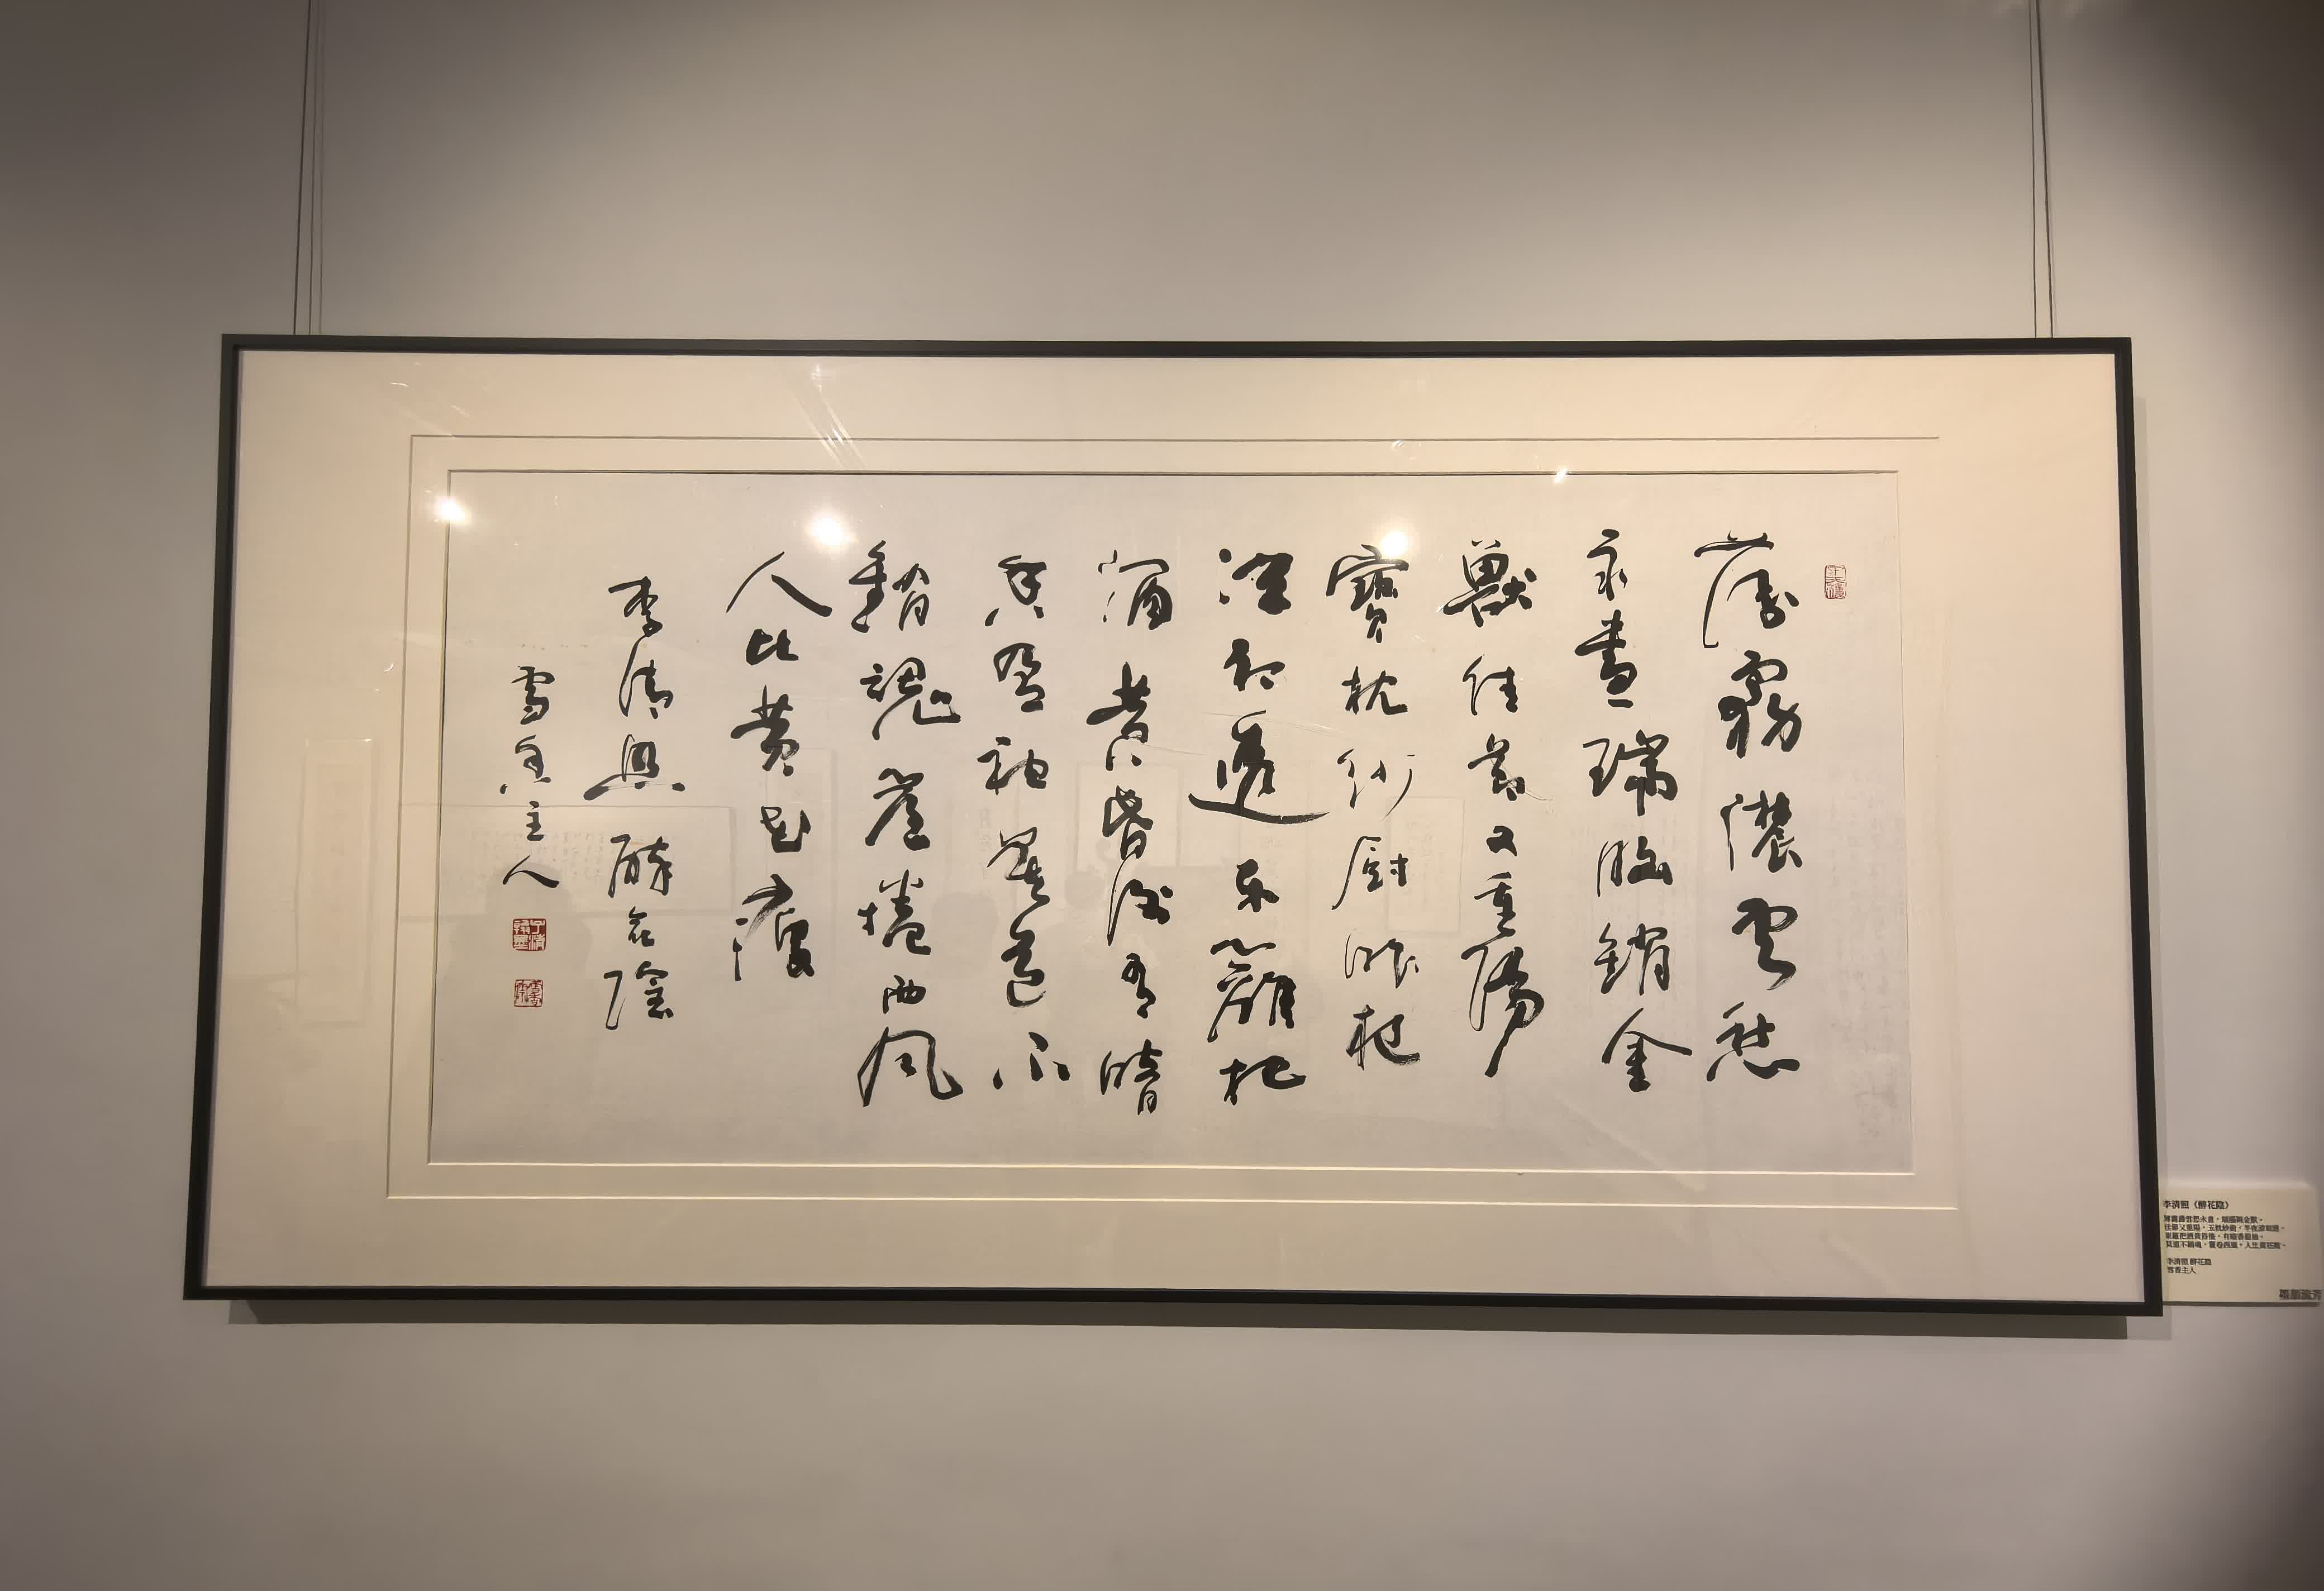 薄霧濃雲愁
永晝瑞腦銷金
獸佳節又重陽
寶枕紗廚昨夜
涼初透東籬把
酒黃昏後有暗
香盈袖莫道不
銷魂簾捲西風
人比黃花瘦
李清照醉花陰
雪香主人
李清照《醉花陰》
薄霧濃雲愁永晝，瑞腦銷金獸。
佳節又重陽，玉枕紗廚，半夜涼初透。
東籬把酒黃昏後，有暗香盈袖。
莫道不銷魂，簾卷西風，人比黃花瘦。
李清照 醉花陰
雪香主人